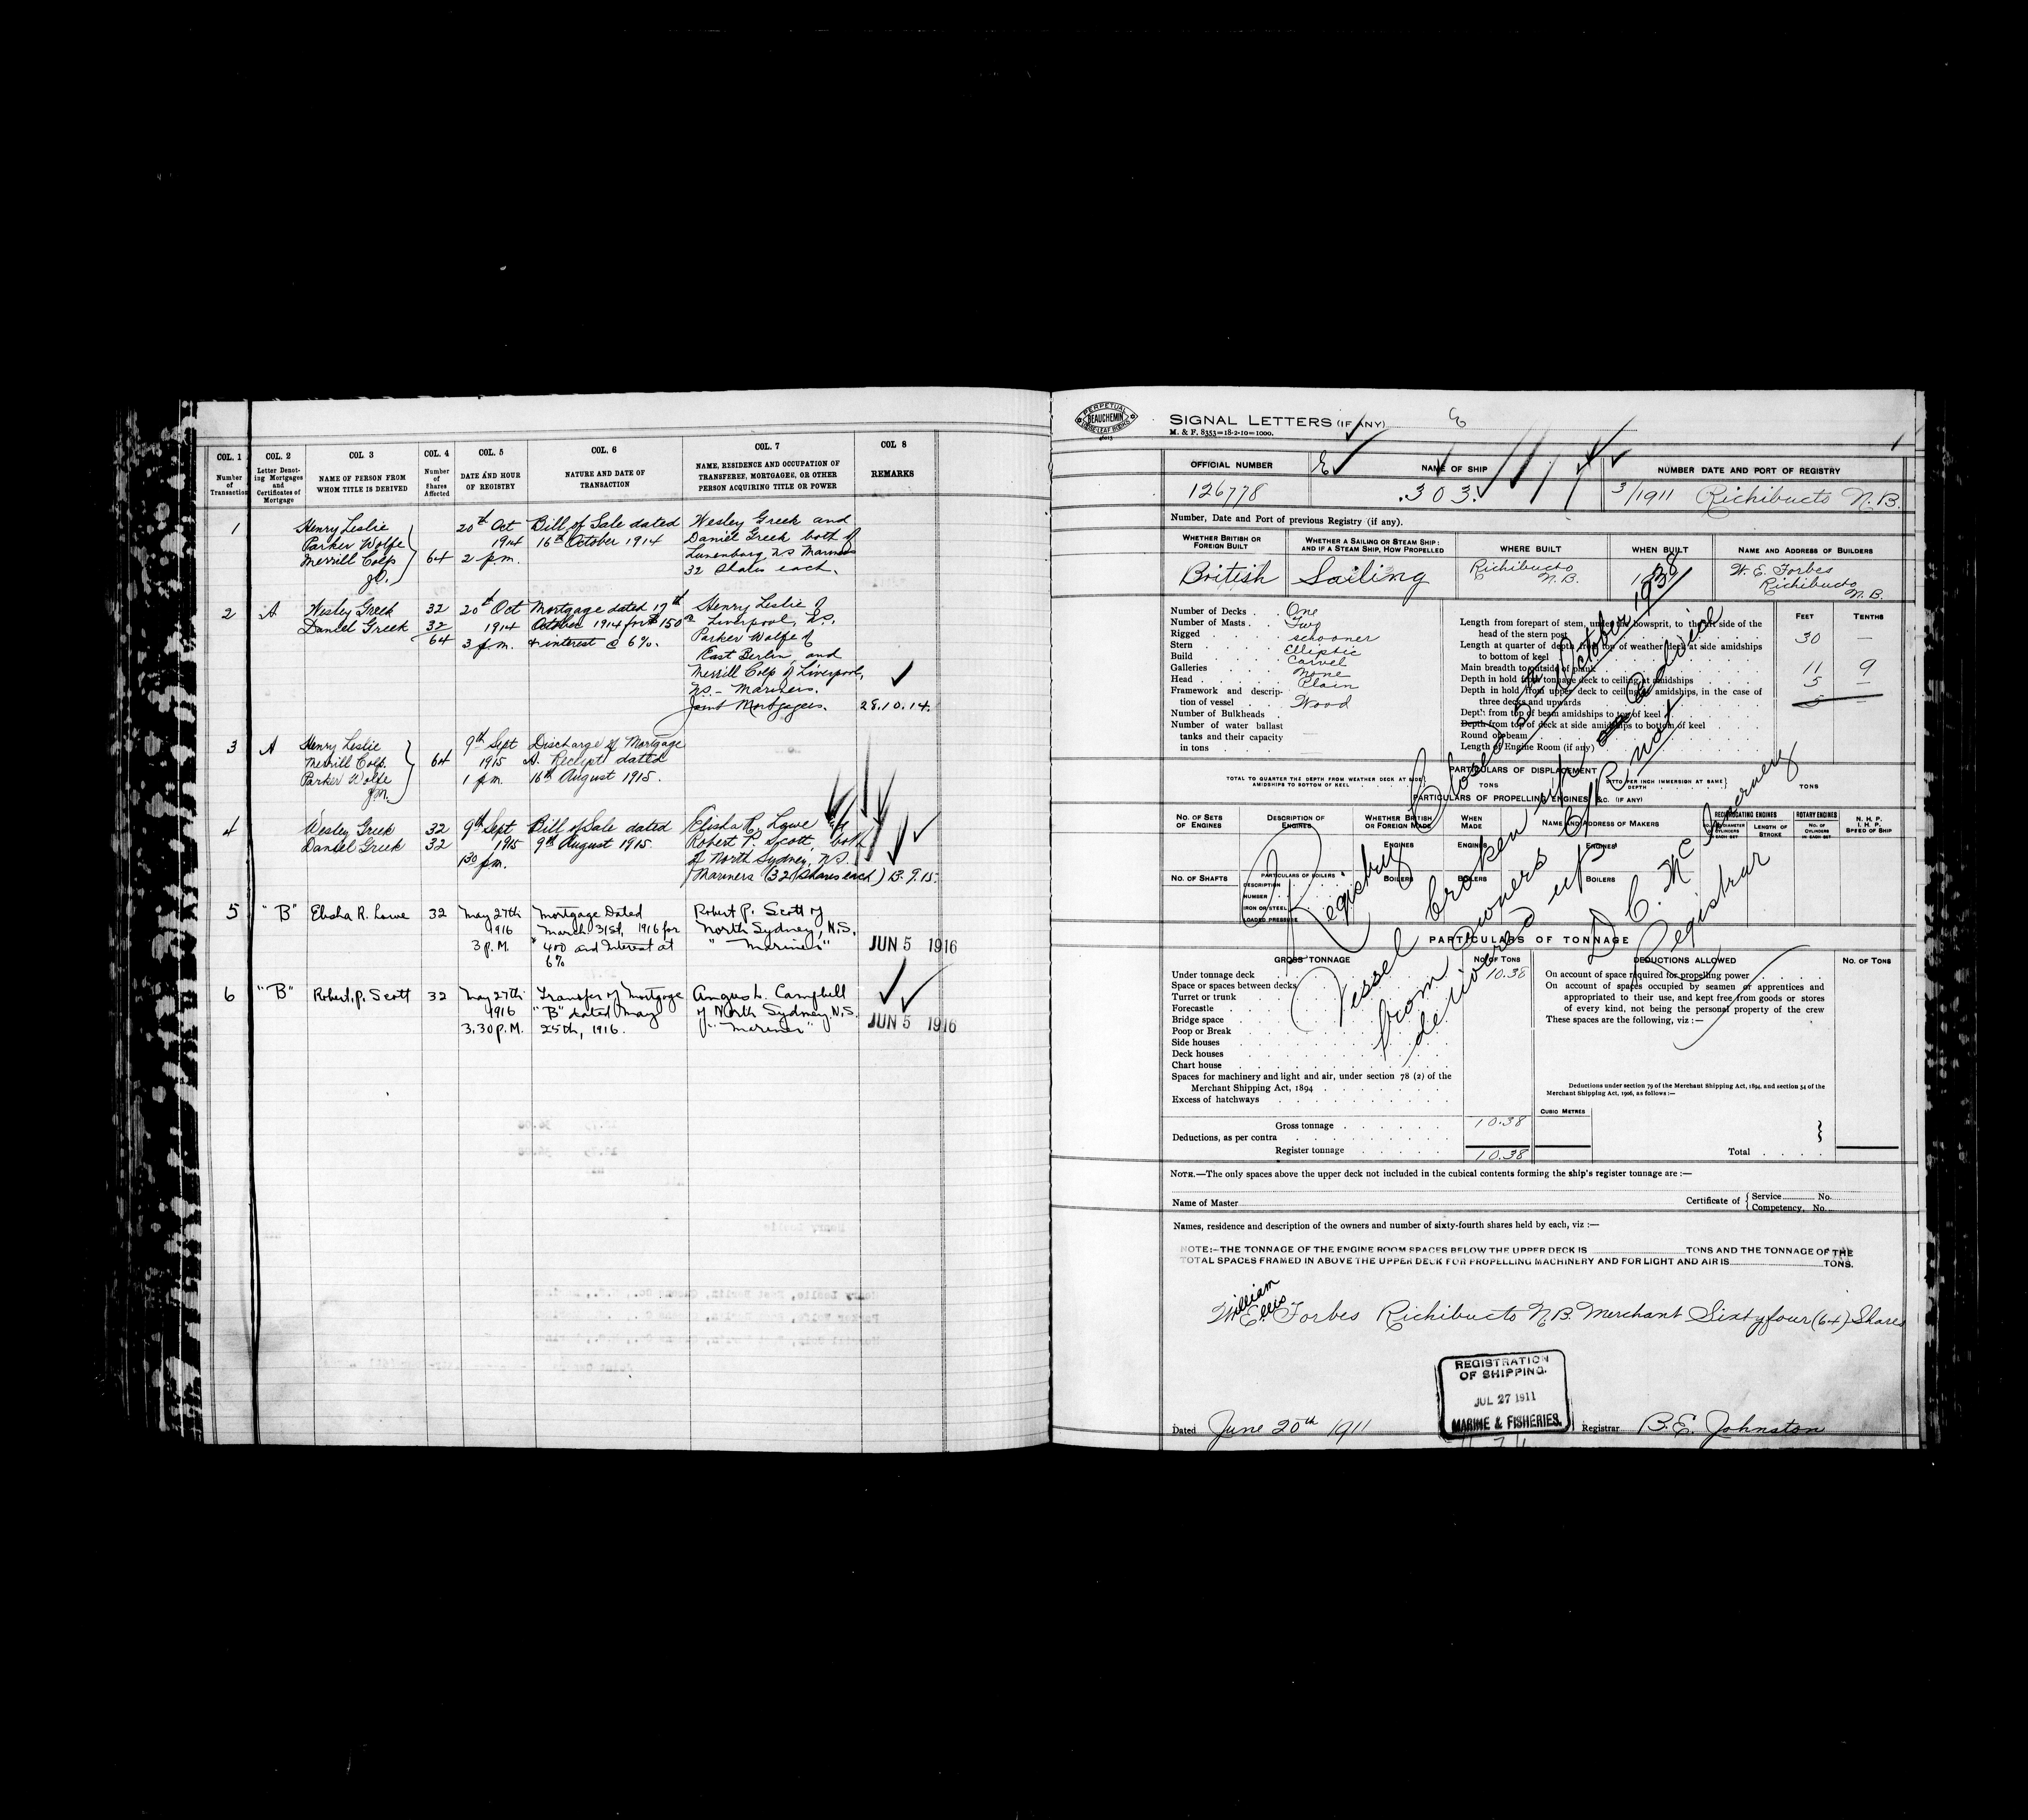 COL. 1 COL. 2 COL. 3 COL. 4 COL. 5 COL. 6 COL. 7 COL 8
Number of Transaction
Letter Denoting Mortgages and Certificates of Mortgage
NAME OF PERSON FROM WHOM TITLE IS DERIVED
Number of Shares Affected
DATE AND HOUR OF REGISTRY
NATURE AND DATE OF TRANSACTION
NAME, RESIDENCE AND OCCUPATION OF TRANSFEREE, MORTGAGEE, OR OTHER PERSON ACQUIRING TITLE OR POWER
REMARKS
1 Henry Leslie 20th Oct Bill of Sale dated Wesley Greek and
Parker Wolfe 1914 16th October 1914 Daniel Greek both of
Merrill Colp 64 2 p.m. Lunenburg, NS Mariners
32 shares each.
2 A Wesley Greek 32 20th Oct Mortgage dated 17th Henry Leslie of
Daniel Greek 32 1914 October 1914 for $150 Liverpool, NS.
64 3 p.m. & interest @ 6%. Parker Wolfe of
East Berlin and
Merrill Colp of Liverpool,
NS - Mariners.
Joint Mortgagees. 28.10.14.
3 A Henry Leslie 9th Sept Discharge of Mortgage
Merrill Colp. 64 1915 A. Receipt dated
Parker Wolfe 1 p.m. 16th August 1915.
4 Wesley Greek 32 9th Sept Bill of Sale dated Elisha R. Lowe
Daniel Greek 32 1915 9th August 1915. Robert P. Scott, both
1 30 p.m. of North Sydney, NS.
Mariners (32 shares each) 13.9.15.
5 "B" Elisha R. Lowe 32 May 27th Mortgage Dated Robert P. Scott of
1916 March 31st, 1916 for North Sydney, N.S.
3 P.M. $400 and Interest at " Mariner" JUN 5 1916
6%
6 "B" Robert, P. Scott 32 May 27th Transfer of Mortgage Angus L. Campbell
1916 "B" dated May of North Sydney, N.S.
3.30 P.M. 25th, 1916. " Mariner" JUN 5 1916
PERPETUAL
BEAUCHEMIN
LOOSE LEAF BOOKS
SIGNAL LETTERS (IF ANY)
M. & F. 8353=18-2-10=1000.
OFFICIAL NUMBER NAME OF SHIP NUMBER DATE AND PORT OF REGISTRY
126778 .303. 3/1911 Richibucto N.B.
Number, Date and Port of previous Registry (if any).
WHETHER BRITISH OR FOREIGN BUILT
WHETHER A SAILING OR STEAM SHIP; AND IF A STEAM SHIP, HOW PROPELLED
WHERE BUILT
WHEN BUILT
NAME AND ADDRESS OF BUILDERS
British Sailing Richibucto N.B. W. E. Forbes Richibucto N.B.
Number of Decks . . One
Number of Masts . . Two
Rigged . . schooner
Stern . . Elliptic
Build . . Carvel
Galleries . . None
Head . . Plain
Framework and description of vessel . . Wood
Number of Bulkheads .
Number of water ballast tanks and their capacity in tons
FEET TENTHS
Length from forepart of stem, under the bowsprit, to the aft side of the head of the stern post 30 —
Length at quarter of depth from top of weather deck at side amidships to bottom of keel
Main breadth to outside of plank 11 9
Depth in hold from tonnage deck to ceiling at amidships 5 —
Depth in hold from upper deck to ceiling at amidships, in the case of three decks and upwards
Depth from top of beam amidships to top of keel
Depth from top of deck at side amidships to bottom of keel
Round of beam
Length of Engine Room (if any)
PARTICULARS OF DISPLACEMENT
TOTAL TO QUARTER THE DEPTH FROM WEATHER DECK AT SIDE AMIDSHIPS TO BOTTOM OF KEEL TONS
DITTO PER INCH IMMERSION AT SAME DEPTH TONS
PARTICULARS OF PROPELLING ENGINES &C. (IF ANY)
No. OF SETS OF ENGINES
DESCRIPTION OF ENGINES
WHETHER BRITISH OR FOREIGN MADE
WHEN MADE
NAME AND ADDRESS OF MAKERS
RECIPROCATING ENGINES
LENGTH OF STROKE
ROTARY ENGINES
N. H. P.
I. H. P.
SPEED OF SHIP
ENGINES ENGINES ENGINES
No. OF SHAFTS
PARTICULARS OF BOILERS
DESCRIPTION
NUMBER
IRON OR STEEL
LOADED PRESSURE
BOILERS BOILERS BOILERS
Registry Closed 5th October 1938
Vessel broken up
from owners not
delivered up
D C. McInerney
Registrar
PARTICULARS OF TONNAGE
GROSS TONNAGE No. OF TONS DEDUCTIONS ALLOWED No. OF TONS
Under tonnage deck 10.38
Space or spaces between decks
Turret or trunk
Forecastle
Bridge space
Poop or Break
Side houses
Deck houses
Chart house
Spaces for machinery and light and air, under section 78 (2) of the
Merchant Shipping Act, 1894
Excess of hatchways
On account of space required for propelling power
On account of spaces occupied by seamen or apprentices and
appropriated to their use, and kept free from goods or stores
of every kind, not being the personal property of the crew
These spaces are the following, viz :—
Deductions under section 79 of the Merchant Shipping Act, 1894, and section 54 of the
Merchant Shipping Act, 1906, as follows :—
CUBIC METRES
Gross tonnage 10.38
Deductions, as per contra
Register tonnage 10.38
Total
NOTE.—The only spaces above the upper deck not included in the cubical contents forming the ship's register tonnage are :—
Name of Master
Certificate of Service No.
Competency, No.
Names, residence and description of the owners and number of sixty-fourth shares held by each, viz :—
NOTE:—THE TONNAGE OF THE ENGINE ROOM SPACES BELOW THE UPPER DECK IS TONS AND THE TONNAGE OF THE
TOTAL SPACES FRAMED IN ABOVE THE UPPER DECK FOR PROPELLING MACHINERY AND FOR LIGHT AND AIR IS TONS.
William Ellis
W. E. Forbes Richibucto N.B. Merchant Sixtyfour (64) Shares
REGISTRATION
OF SHIPPING.
JUL 27 1911
MARINE & FISHERIES.
Dated June 20th 1911 Registrar B. E. Johnston